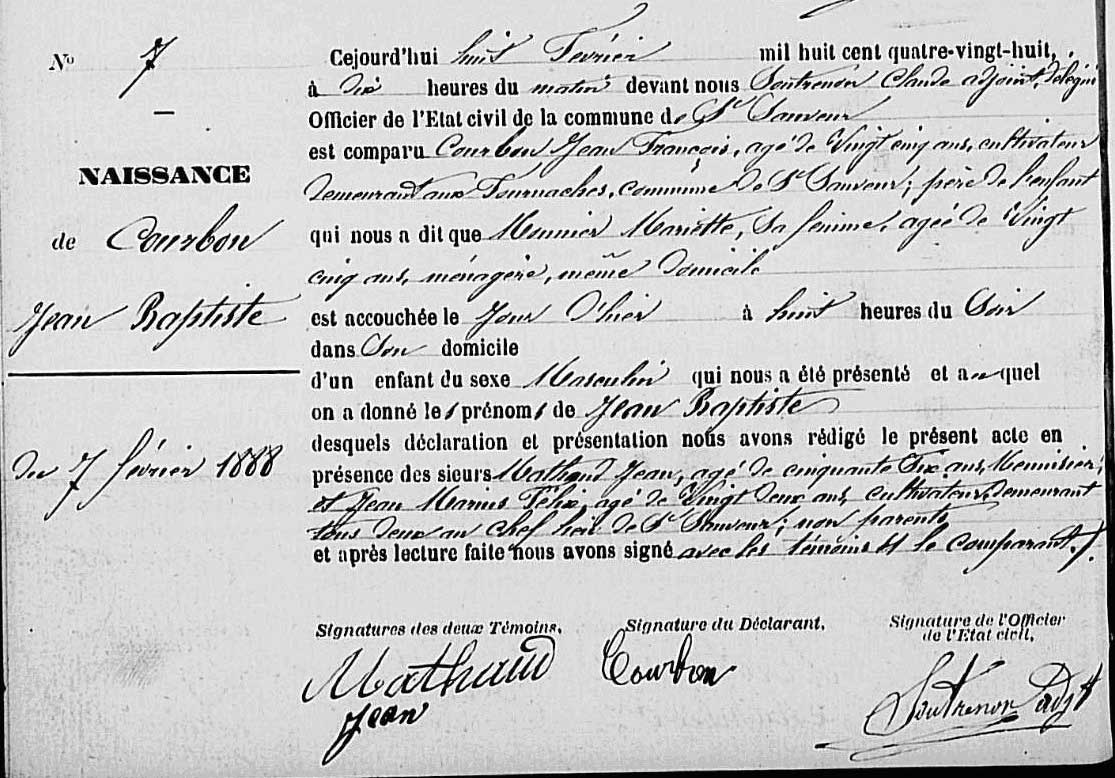 N° 7
NAISSANCE
de Courbon
Jean Baptiste
du 7 février 1888
Cejourd'hui huit Février mil huit cent quatre-vingt-huit,
à dix heures du matin devant nous Soutrenon Claude adjoint délégué
Officier de l'Etat civil de la commune de St Sauveur
est comparu Courbon Jean François, agé de Vingt cinq ans, cultivateur
demeurant aux Tournaches, commune de St Sauveur; père de l'enfant
qui nous a dit que Meunier Mariette, Sa femme, agée de Vingt
cinq ans, ménagère, même domicile
est accouchée le Jour d'hier à huit heures du Soir
dans Son domicile
d'un enfant du sexe Masculin qui nous a été présenté et auquel
on a donné les prénoms de Jean Baptiste
desquels déclaration et présentation nous avons rédigé le présent acte en
présence des sieurs Mathaud Jean, agé de cinquante Six ans, Menuisier;
et Jean Marius Félix, agé de Vingt deux ans, cultivateur, demeurant
tous deux au chef lieu de St Sauveur; non parents
et après lecture faite nous avons signé avec les témoins et le comparant./.
Signatures des deux Témoins. Signature du Déclarant. Signature de l'Officier
de l'Etat civil,
Mathaud Courbon
Jean
Soutrenon adjt